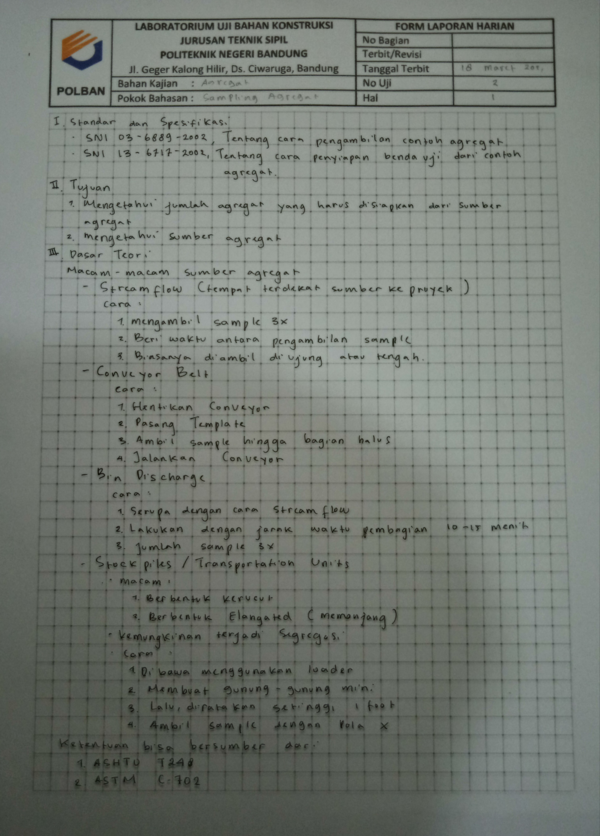 LABORATORIUM UJI BAHAN KONSTRUKSI
JURUSAN TEKNIK SIPIL
POLITEKNIK NEGERI BANDUNG
Jl. Geger Kalong Hilir, Ds. Ciwaruga, Bandung
POLBAN
FORM LAPORAN HARIAN
No Bagian
Terbit/Revisi
Tanggal Terbit 18 Maret
Bahan Kajian : Agregat
No Uji 2
Pokok Bahasan : Sampling Agregat
Hal 1
I. Standar dan Spesifikasi
· SNI 03-6889-2002, Tentang cara pengambilan contoh agregat
· SNI 13-6717-2002, Tentang cara penyiapan benda uji dari contoh
agregat.
II. Tujuan
1. Mengetahui jumlah agregat yang harus disiapkan dari sumber
agregat
2. mengetahui sumber agregat
III. Dasar Teori
Macam-macam sumber agregat
- Streamflow (tempat terdekat sumber ke proyek)
cara :
1. mengambil sample 3x
2. Beri waktu antara pengambilan sample
3. Biasanya diambil di ujung atau tengah.
- Conveyor Belt
cara :
1. Hentikan Conveyor
2. Pasang Template
3. Ambil sample hingga bagian halus
4. Jalankan Conveyor
- Bin Discharge
cara :
1. Serupa dengan cara Stream flow
2. Lakukan dengan jarak waktu pembagian 10-15 menit
3. Jumlah sample 3x
- Stock piles / Transportation Units
· macam :
1. Berbentuk kerucut
2. Berbentuk Elangated (memanjang)
· Kemungkinan terjadi Segregasi
· Cara :
1. Dibawa menggunakan loader
2. Membuat gunung-gunung mini
3. Lalu, diratakan setinggi 1 feet
4. Ambil sample dengan Pola X
Ketentuan bisa bersumber dari
1. ASHTO T248
2. ASTM C-702